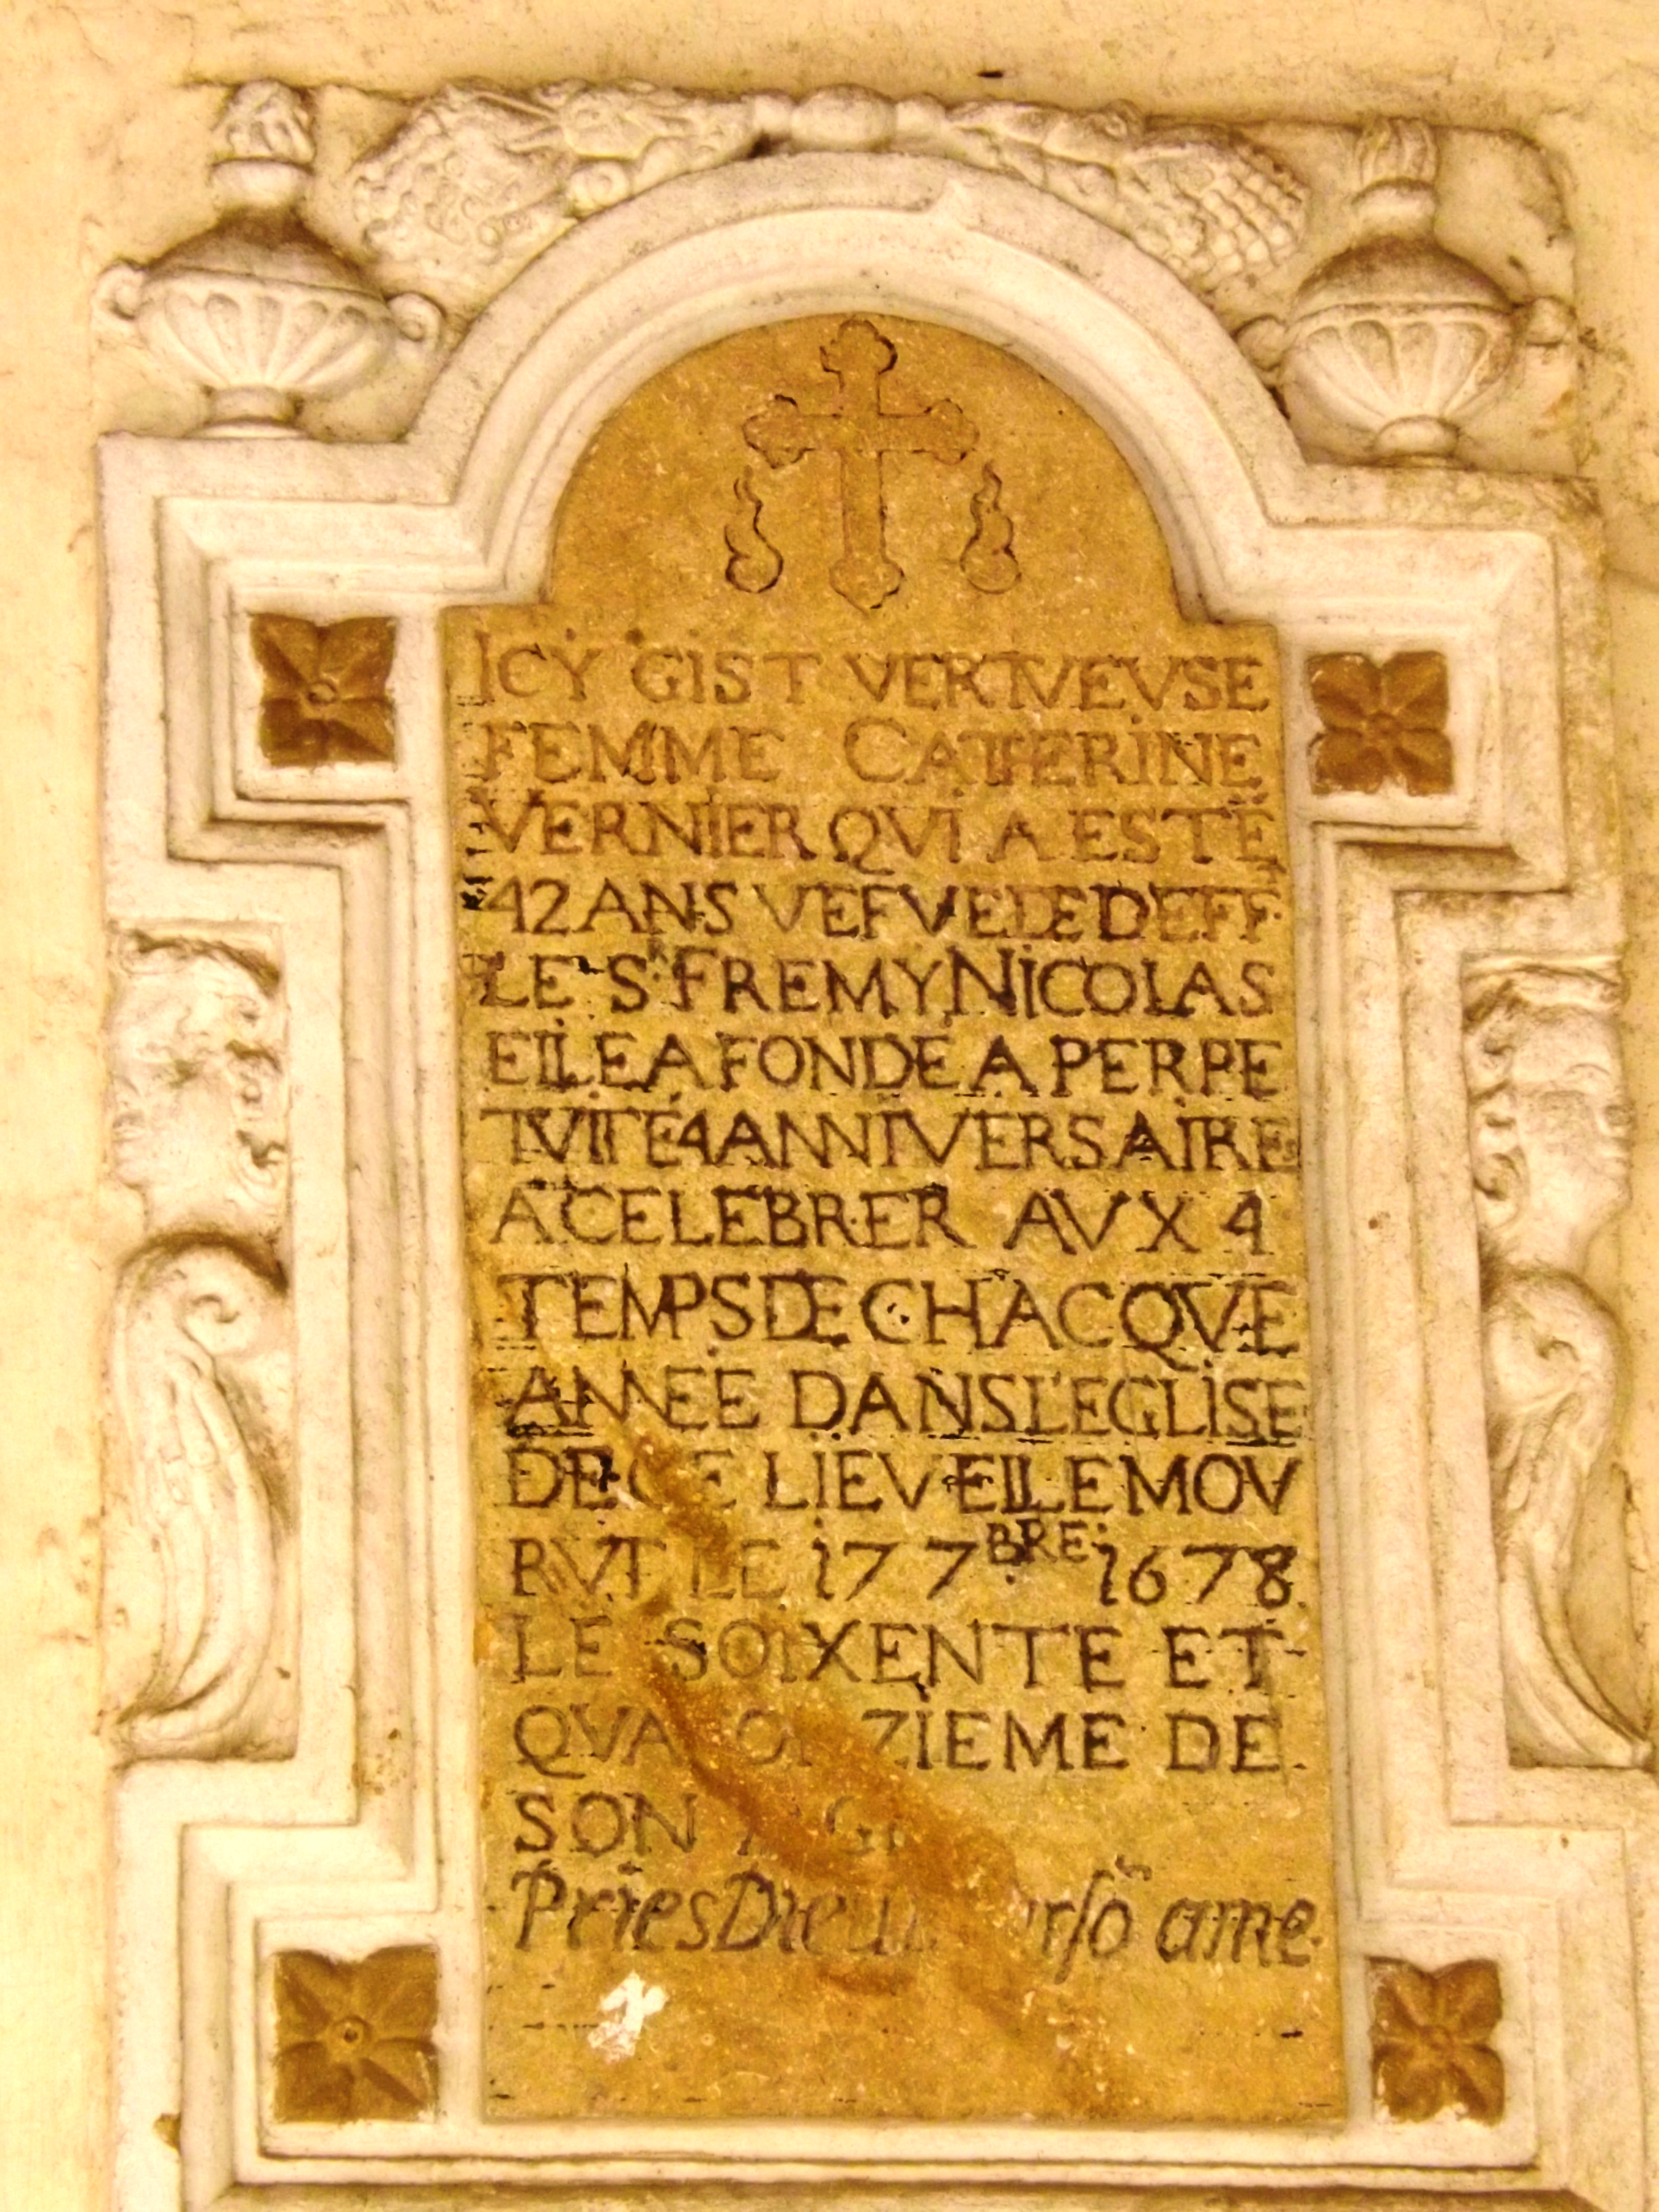 ICY GIST VERTVEVSE
FEMME CATHERINE
VERNIER QVI A ESTÉ
42 ANS VEFVE DE DEFF
LE SR FREMY NICOLAS
ELLE A FONDÉ A PERPE
TVITÉ 4 ANNIVERSAIRE
A CELEBRER AVX 4
TEMPS DE CHACQVE
ANNEE DANS L'EGLISE
DE CE LIEV ELLE MOV
RVT LE 17 7BRE 1678
LE SOIXENTE ET
QVATORZIEME DE
SON AGE
Pries Dieu pour sõ ame